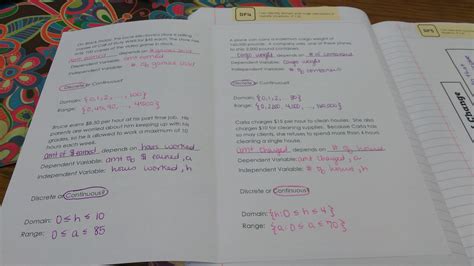 On Black Friday, the local electronics store is selling
copies of Call of Duty XXXIV for $45 each. The store has
only 100 copies of the video game in stock.
amt earned depends on # games sold
Dependent Variable: amt earned
Independent Variable: # of games sold
Discrete or Continuous?
Domain: {0,1,2, ..., 100}
Range: {0,45,90, ..., 4500}
Bruce earns $8.50 per hour at his part time job. His
parents are worried about him keeping up with his
grades, so he is allowed to work a maximum of 10
hours each week.
amt of $ earned depends on hours worked
Dependent Variable: amt of $ earned, a
Independent Variable: hours worked, h
Discrete or Continuous?
Domain: 0 ≤ h ≤ 10
Range: 0 ≤ a ≤ 85
DF4
A plane can carry a maximum cargo weight of
Cargo weight depends on # of
Dependent Variable: Cargo weight
Independent Variable: # of
Discrete or Continuous?
Domain: {0,1,2,
Range:
Carla charges $15 per hour to clean houses. She also
charges $10 for cleaning supplies. Because Carla has
so many clients, she refuses to spend more than 4 hours
cleaning a single house.
amt charged depends on # of hours
Dependent Variable: amt charged, a
Independent Variable: # of hours, h
Discrete or Continuous?
Domain: {h: 0 ≤ h ≤ 4}
Range: {a: 0 ≤ a ≤ 70}
DF5
charge